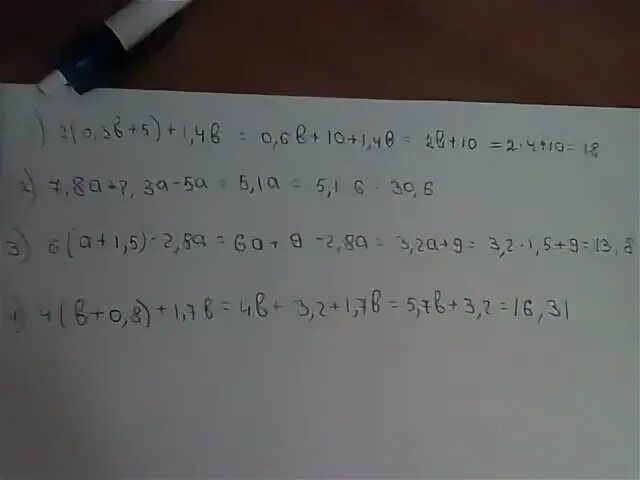 1) 2(0,3b+5)+1,4b = 0,6b+10+1,4b = 2b+10 =2·4+10=18
2) 7,8a+2,3a-5a=5,1a= 5,1 6 · 30,6
3) 6(a+1,5)-2,8a=6a+9-2,8a=3,2a+9=3,2·1,5+9=13,8
4(b+0,8)+1,7b=4b+3,2+1,7b=5,7b+3,2=16,31